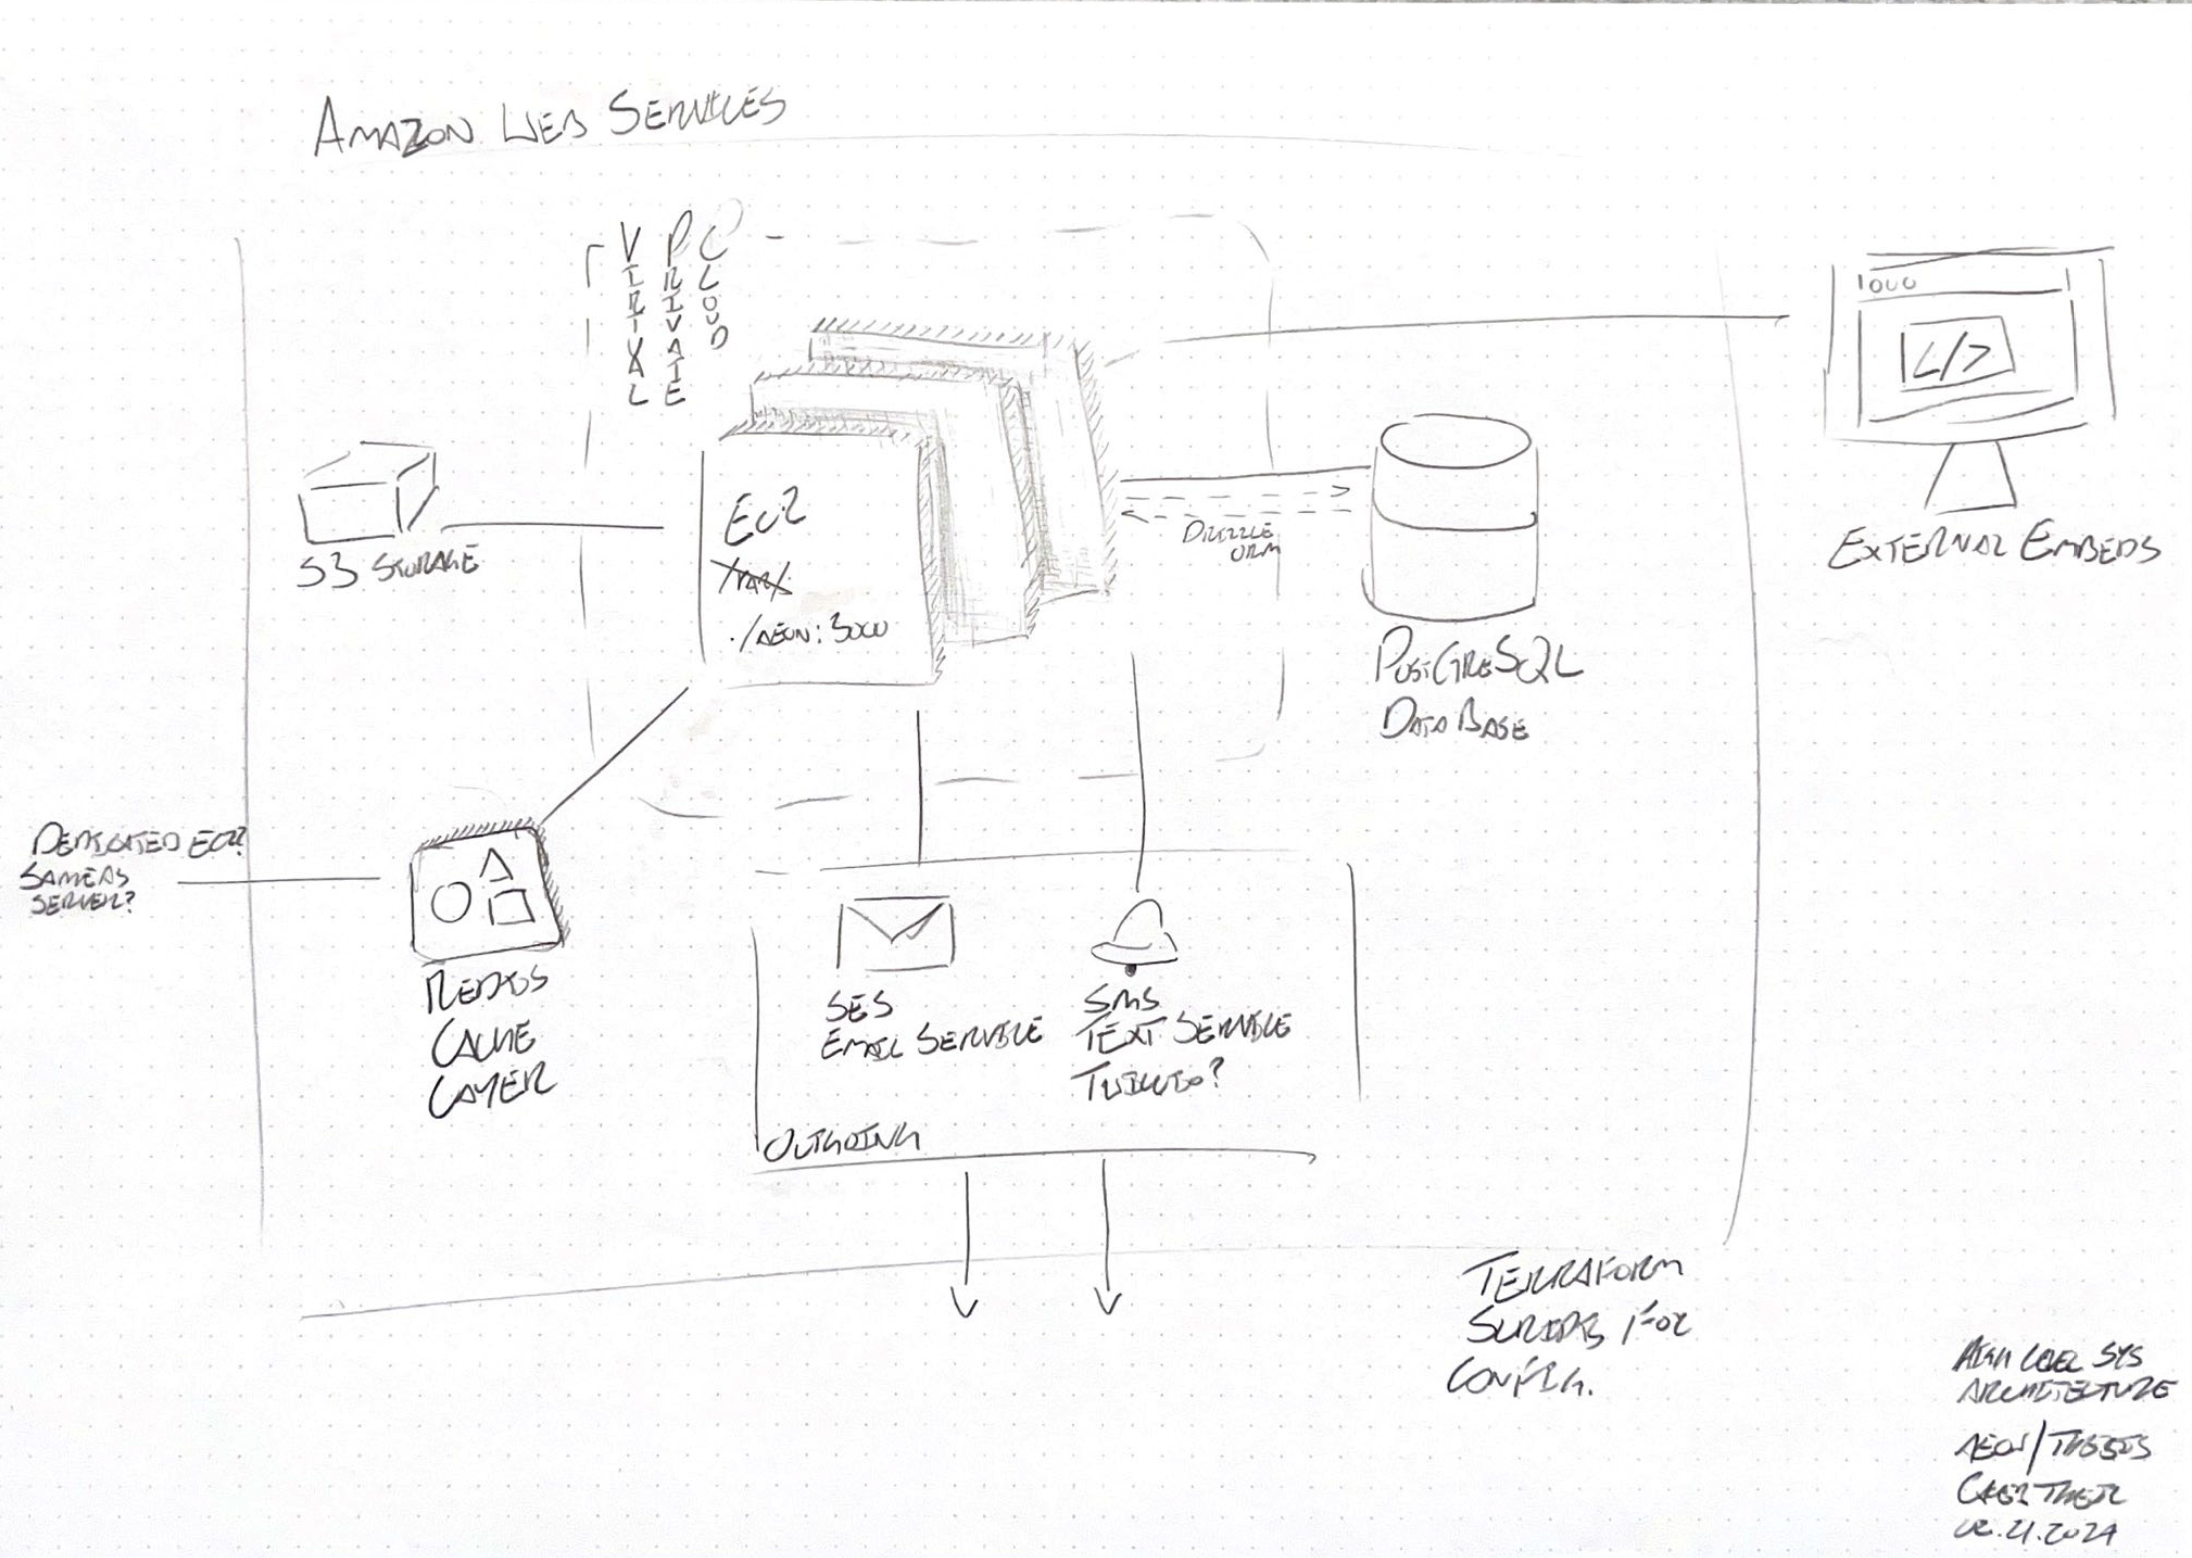 AMAZON WEB SERVICES
VIRTUAL PRIVATE CLOUD
EC2
./AEON:3000
S3 STORAGE
DRIZZLE
ORM
POSTGRESQL
DATABASE
EXTERNAL EMBEDS
DEDICATED EC2?
SAME AS
SERVER?
REDIS
CACHE
LAYER
SES
EMAIL SERVICE
SMS
TEXT SERVICE
TWILIO?
OUTGOING
TERRAFORM
SCRIPTS FOR
CONFIG.
HIGH LEVEL SYS
ARCHITECTURE
AEON/THESIS